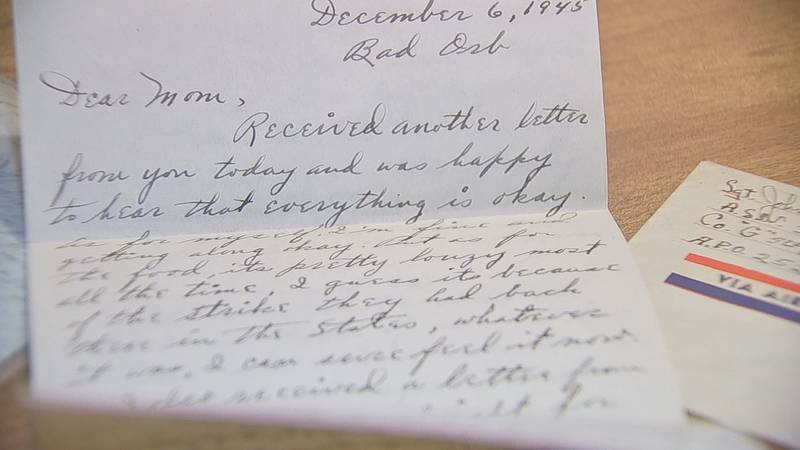 December 6, 1945
Bad Orb
Dear Mom,
Received another letter
from you today and was happy
to hear that everything is okay.
As for myself, I'm fine and
getting along okay. But as for
the food, its pretty lousy most
all the time, I guess its because
of the strike they had back
there in the States, whatever
it was, I can sure feel it now.
received a letter from
for
Sgt. Joh
Co. G"
A.P.O. 25
VIA AI